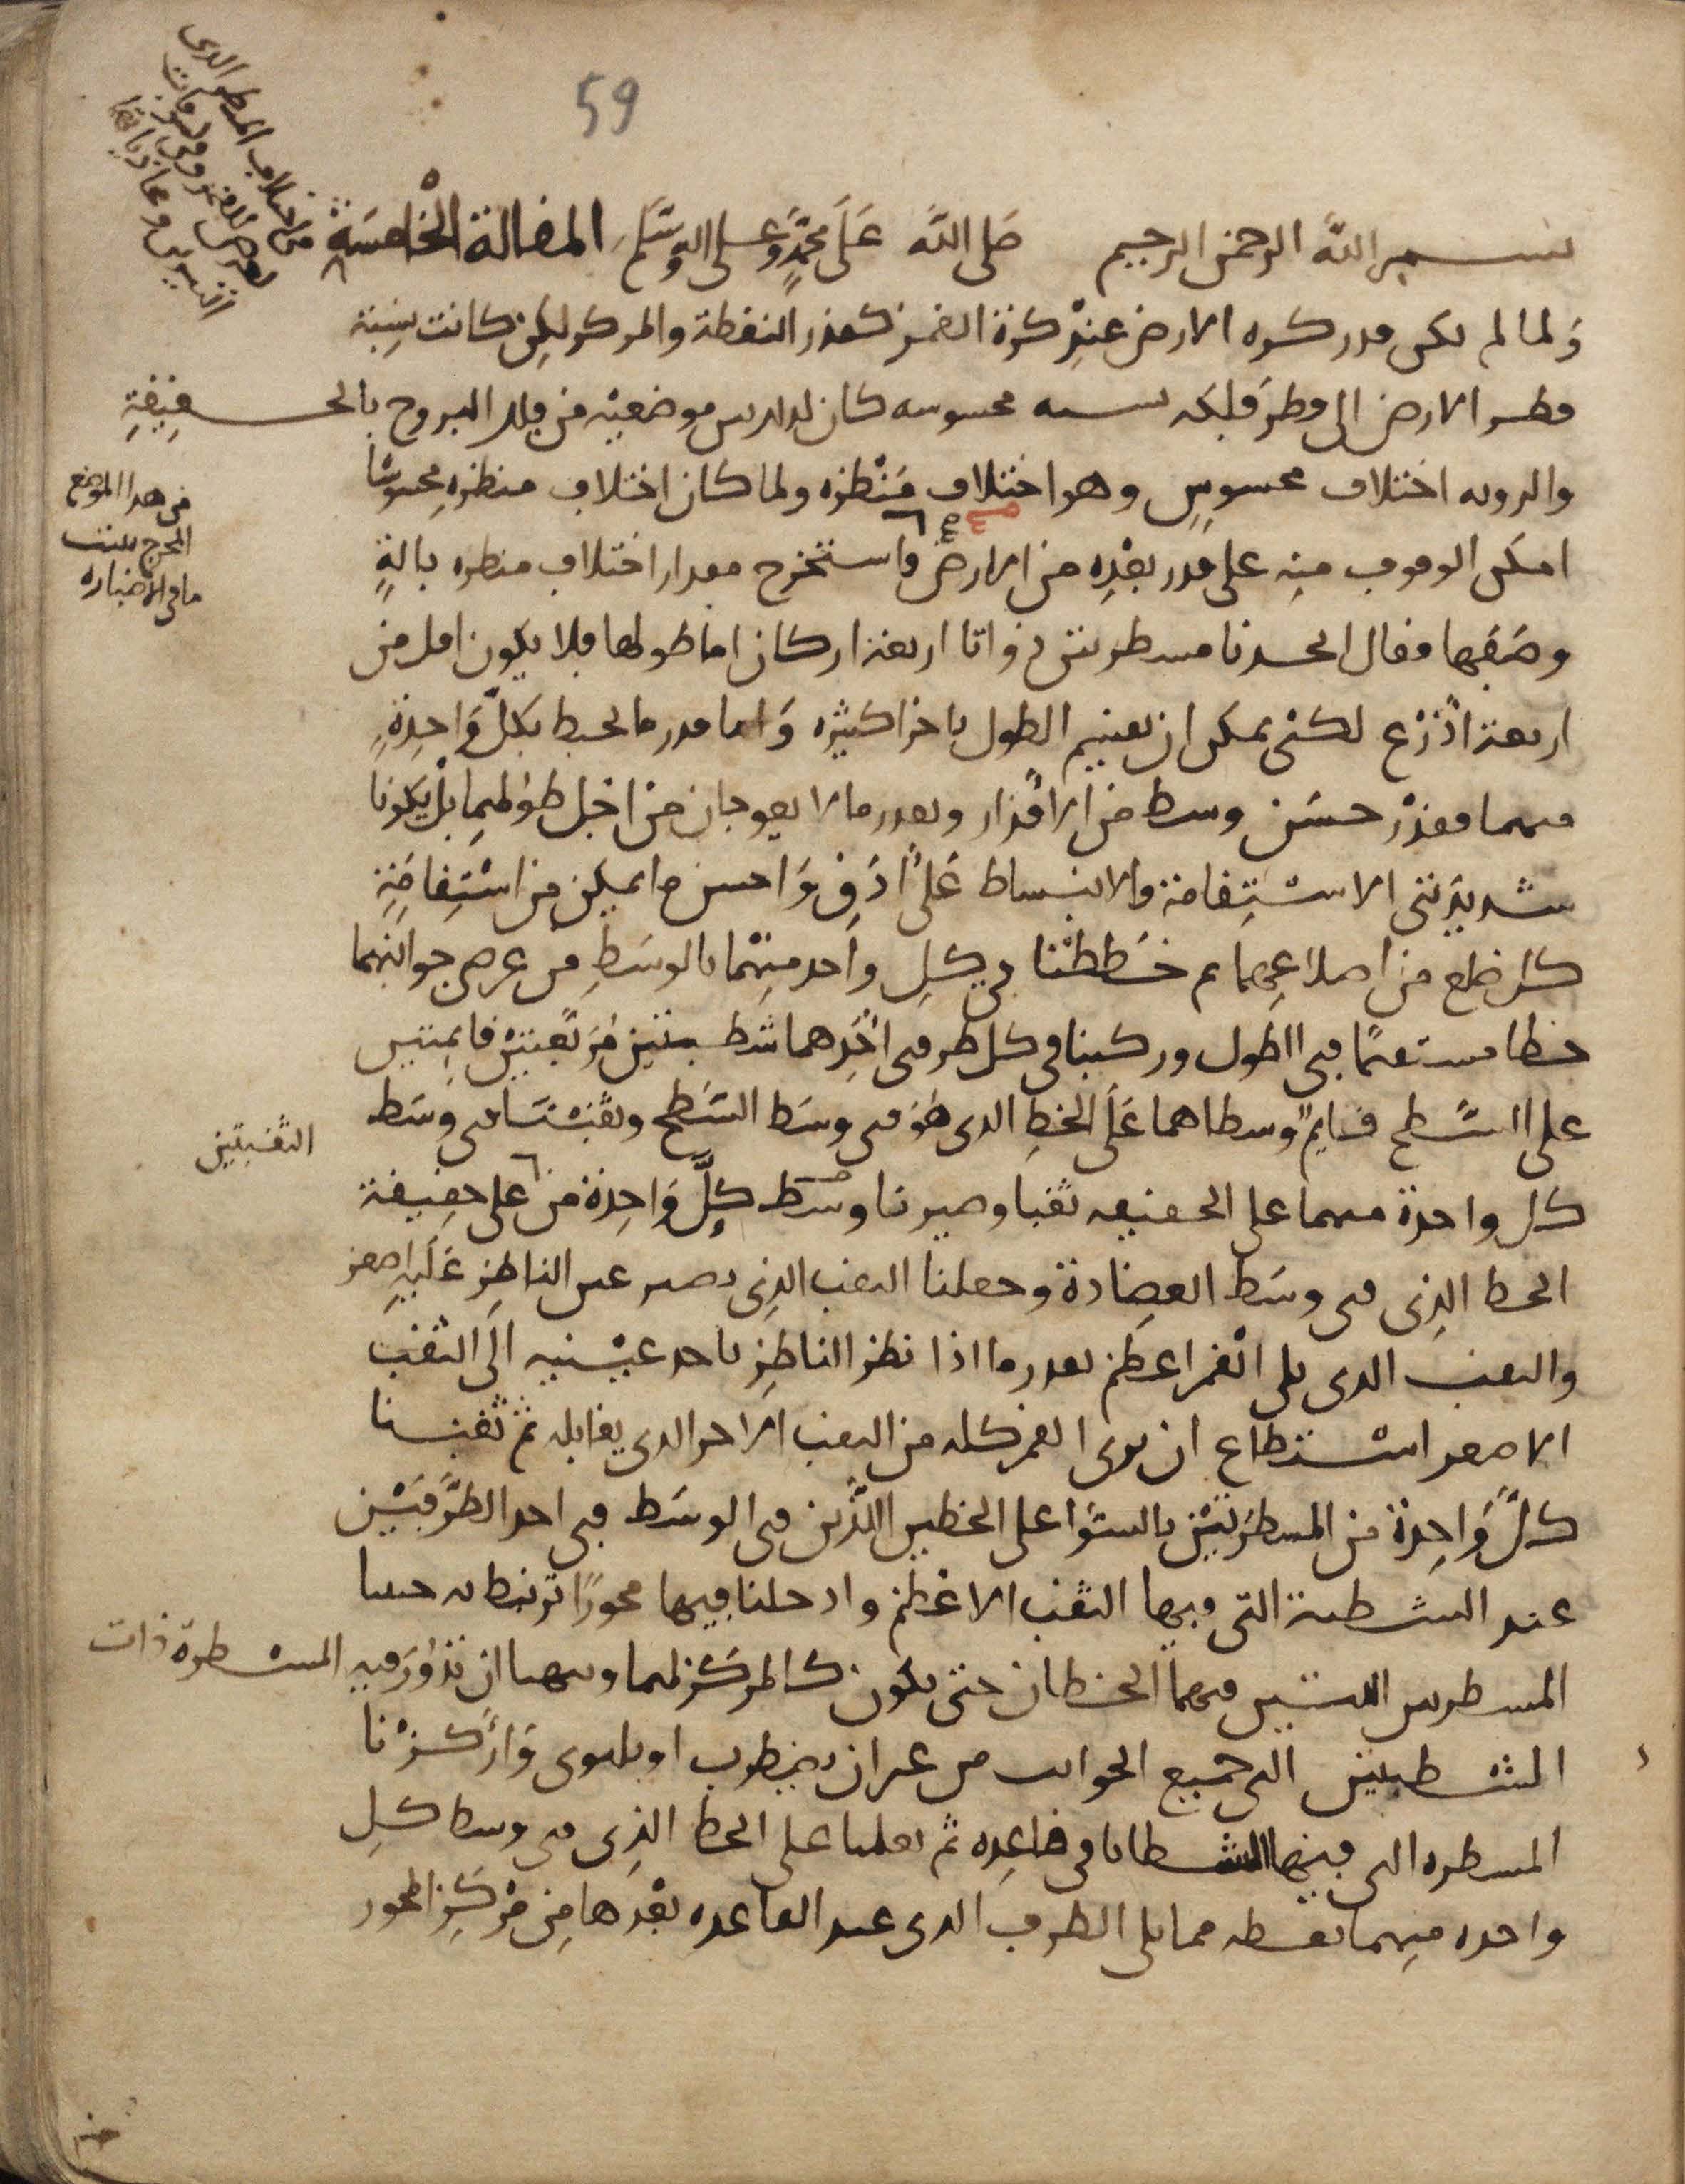 59
من اختلاف المنظر الذى
يعرض للقمر وفى
بسم الله الرحمن الرحيم صلى الله على محمد وعلى اله وسلم المقالة الخامسة
ولما لم يكن قدر كره الارض عند كرة القمر كقدر النقطة والمركز لكن كانت نسبة
قطر الارض الى قطر فلكه نسبه محسوسه كان لدلك بين موضعيه من فلك البروج بالحقيقة
والرويه اختلاف محسوس وهو اختلاف منظره ولما كان اختلاف منظره محسوسا
امكن الوقوف منه على قدر بعده من الارض واستخرج مقدار اختلاف منظره بالة
فى هدا الموضع
وصفها فقال اتخذنا مسطرتين ذواتا اربعة اركان اما طولها فلا يكون اقل من
اربعة اذرع لكنى يمكن ان يقسم الطول باجزا كثيره واما قدر ما يحيط بكل واحدة
منهما فقدر حسن وسط من الاقدار وبقدر ما لا يعوجان من اجل طولهما بل يكونا
شديدتى الاستقامة والانبساط على ادق واحسن ما يمكن من استقامة
كل ضلع من اضلاعهما ثم خططنا في كل واحد منهما بالوسط من عرض جوانبهما
خطا مستقيما فى الطول وركبنا فى كل طرفى احدهما شطبتين مربعتين قايمتين
على السطح قايم وسطاهما على الخط الدى هو فى وسط السطح وثقبنا فى وسط
كل واحدة منهما على الحقيقه ثقبا وصيرنا وسط كل واحدة من على حقيقة
الثقبتين
الخط الذى فى وسط العضادة وجعلنا الثقب الذى يصير عين الناظر عليه اصغر
والثقب الدى يلى القمر اعظم بقدر ما اذا نظر الناظر باحد عينيه الى الثقب
الاصغر استطاع ان يرى القمر كله من الثقب الاخر الدى يقابله ثم ثقبنا
كل واحدة من المسطرتين بالسوا على الخطين اللذين فى الوسط فى احد الطرفين
عند الشطبة التى فيها الثقب الاعظم وادخلنا فيها محورا ترتبط به جنبا
المسطرتين اللتين فيهما الخطان حتى يكون كالمركز لهما ويتهيا ان تدور فيه المسطرة ذات
الشطبتين الى جميع الجوانب من غير ان يضطرب او يلتوى واركزنا
المسطره التى فيها الشطبتان فى قاعده ثم تعلمنا على الخط الذى فى وسط كل
واحده منهما نقطه مما يلى الطرف الدى عند القاعده بعدها من مركز المحور